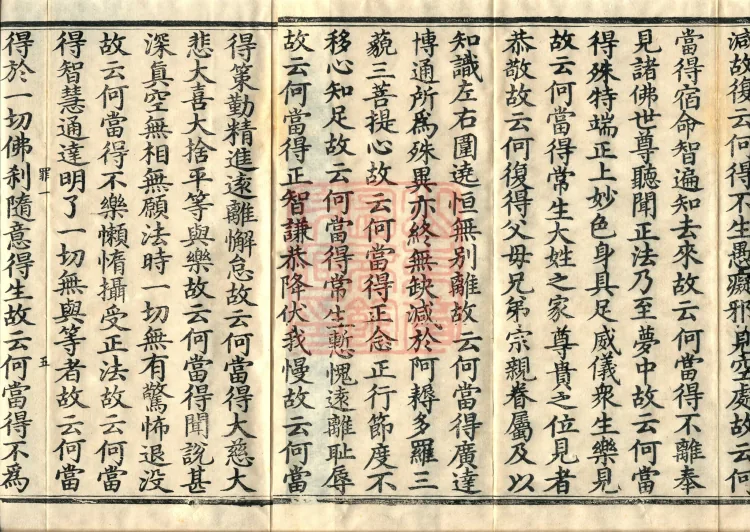 減故復云何得不生愚癡邪見空處故云何
當得宿命智遍知去來故云何當得不離奉
見諸佛世尊聽聞正法乃至夢中故云何當
得殊特端正上妙色身具足威儀衆生樂見
故云何當得常生大姓之家尊貴之位見者
恭敬故云何復得父母兄弟宗親眷屬及以
知識左右圍遶恒無別離故云何當得廣達
博通所爲殊異亦終無缺減於阿耨多羅三
藐三菩提心故云何當得正念正行節度不
移心知足故云何當得常生慙愧遠離恥辱
故云何當得正智謙恭降伏我慢故云何當
得策勤精進遠離懈怠故云何當得大慈大
悲大喜大捨平等與樂故云何當得聞說甚
深真空無相無願法時一切無有驚怖退没
故云何當得不樂懶惰攝受正法故云何當
得智慧通達明了一切無與等者故云何當
罪一 五
得於一切佛刹隨意得生故云何當得不爲